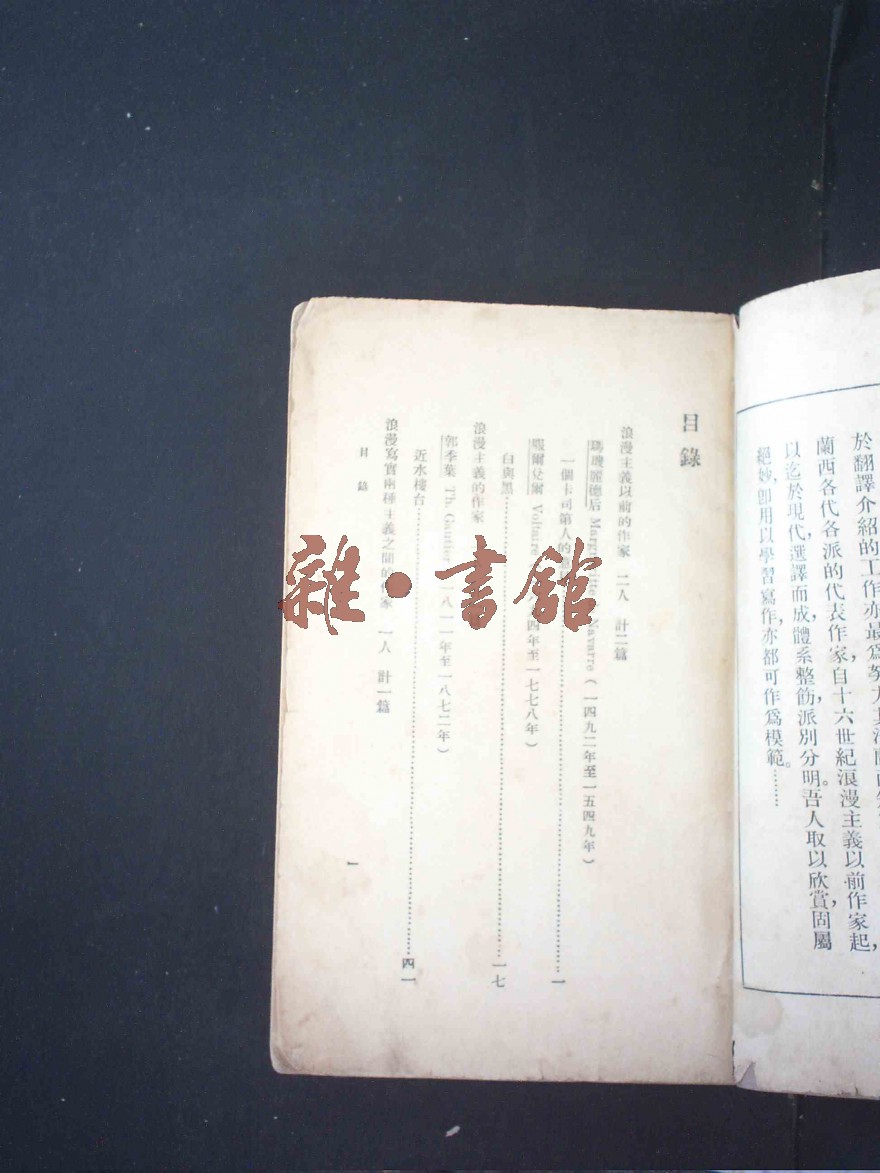 於翻譯介紹的工作亦最爲
蘭西各代各派的代表作家，自十六世紀浪漫主義以前作家起，
以迄於現代，選譯而成，體系整飭，派別分明。吾人取以欣賞，固屬
絕妙，卽用以學習寫作，亦都可作爲模範。………
目錄
浪漫主義以前的作家 二人 計二篇
瑪瑰麗德后 Marguerite Navarre（一四九二年至一五四九年）
一個卡司第人的 一
嚈爾兌爾 Voltaire 四年至一七七八年）
白與黑 一七
浪漫主義的作家
郭季葉 Th Gautier 一八一一年至一八七二年）
近水樓台 四一
浪漫寫實兩種主義之間的作家 一人 計一篇
目錄
一
雜·書館